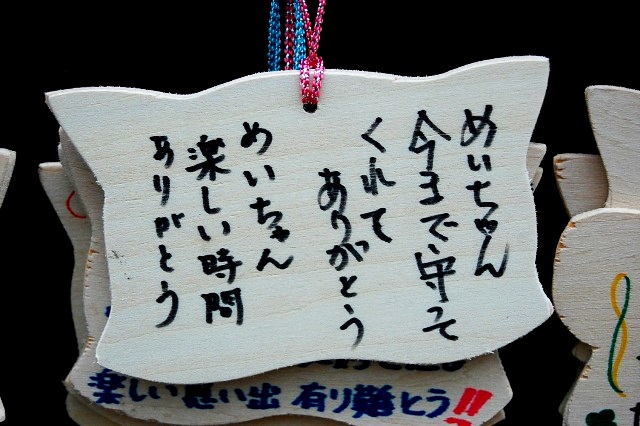 めいちゃん
今まで守って
くれて
ありがとう
めいちゃん
楽しい時間
ありがとう
楽しい思い出 有り難とう!!